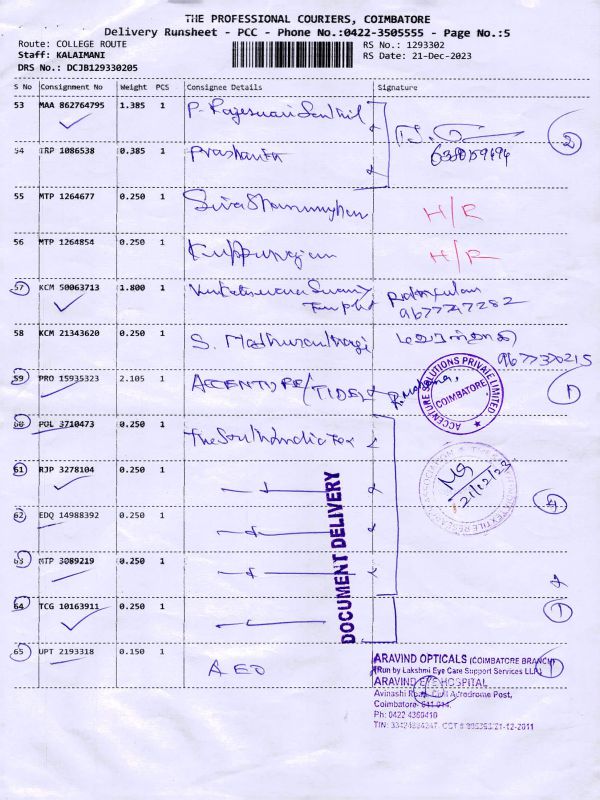 THE PROFESSIONAL COURIERS, COIMBATORE
Delivery Runsheet - PCC - Phone No.:0422-3505555 - Page No.:5
Route: COLLEGE ROUTE
RS No.: 1293302
Staff: KALAIMANI
RS Date: 21-Dec-2023
DRS No.: DCJB129330205
S No Consignment No Weight PCS Consignee Details Signature
53 MAA 862764795 1.385 1 P. Rajeswari Senthil
2
54 TRP 1086538 0.385 1 Prashanth
55 MTP 1264677 0.250 1 H/R
56 MTP 1264854 0.250 1 H/R
57 KCM 50063713 1.800 1 Swamy
9677747282
58 KCM 21343620 0.250 1 S.
9677370215
59 PRO 15935323 2.105 1 ACCENTURE/TIDEL
ACCENTURE SOLUTIONS PRIVATE LIMITED
COIMBATORE
1
60 POL 3710473 0.250 1 The South India Tex
61 RJP 3278104 0.250 1
21/12/23
62 EDQ 14988392 0.250 1
4
63 MTP 3089219 0.250 1
DOCUMENT DELIVERY
64 TCG 10163911 0.250 1
1
65 UPT 2193318 0.150 1 AEO
ARAVIND OPTICALS (COIMBATORE BRANCH)
(Run by Lakshmi Eye Care Support Services LLP.)
ARAVIND EYE HOSPITAL
Avinashi Road, Civil Aerodrome Post,
Coimbatore-641 014.
Ph: 0422 4360410